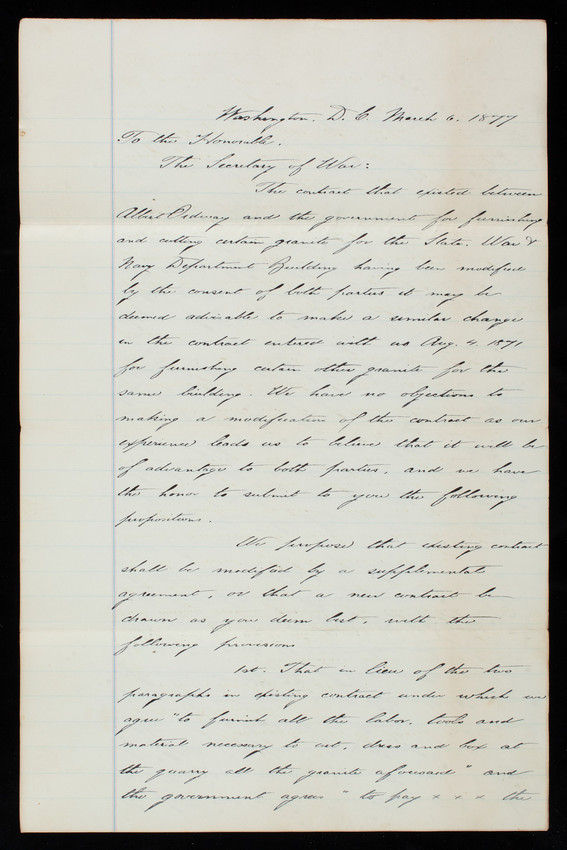 Washington. D. C. March 6. 1877
To the Honorable.
The Secretary of War:
The contract that existed between
Albert Ordway and the government for furnishing
and cutting certain granite for the State, War &
Navy Department Building having been modified
by the consent of both parties it may be
deemed advisable to make a similar change
in the contract entered with us Aug. 4. 1871
for furnishing certain other granite for the
same building. We have no objections to
making a modification of the contract as our
experience leads us to believe that it will be
of advantage to both parties, and we have
the honor to submit to you the following
propositions.
We propose that existing contract
shall be modified by a supplemental
agreement, or that a new contract be
drawn as you deem best, with the
following provisions
1st. That in lieu of the two
paragraphs in existing contract under which we
agree "to furnish all the labor, tools and
material necessary to cut, dress and box at
the quarry all the granite aforesaid" and
the government agrees "to pay x x x the